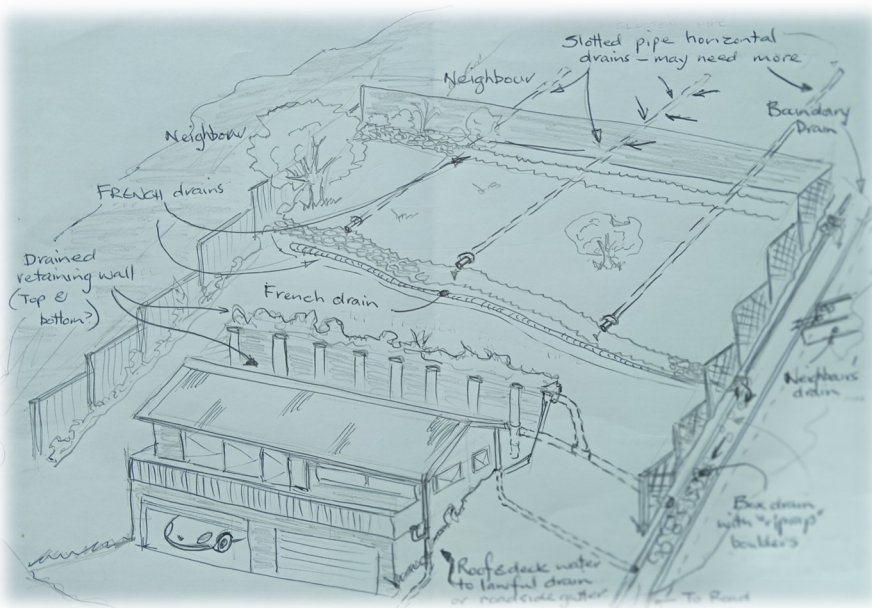 Slotted pipe horizontal
drains - may need more
Neighbour
Boundary
Drain
Neighbour
FRENCH drains
Drained
retaining wall
(Top &
bottom?)
French drain
Neighbours
drain
Box drain
with "riprap"
boulders
Roof & deck water
to lawful drain
or roadside gutter
To Road